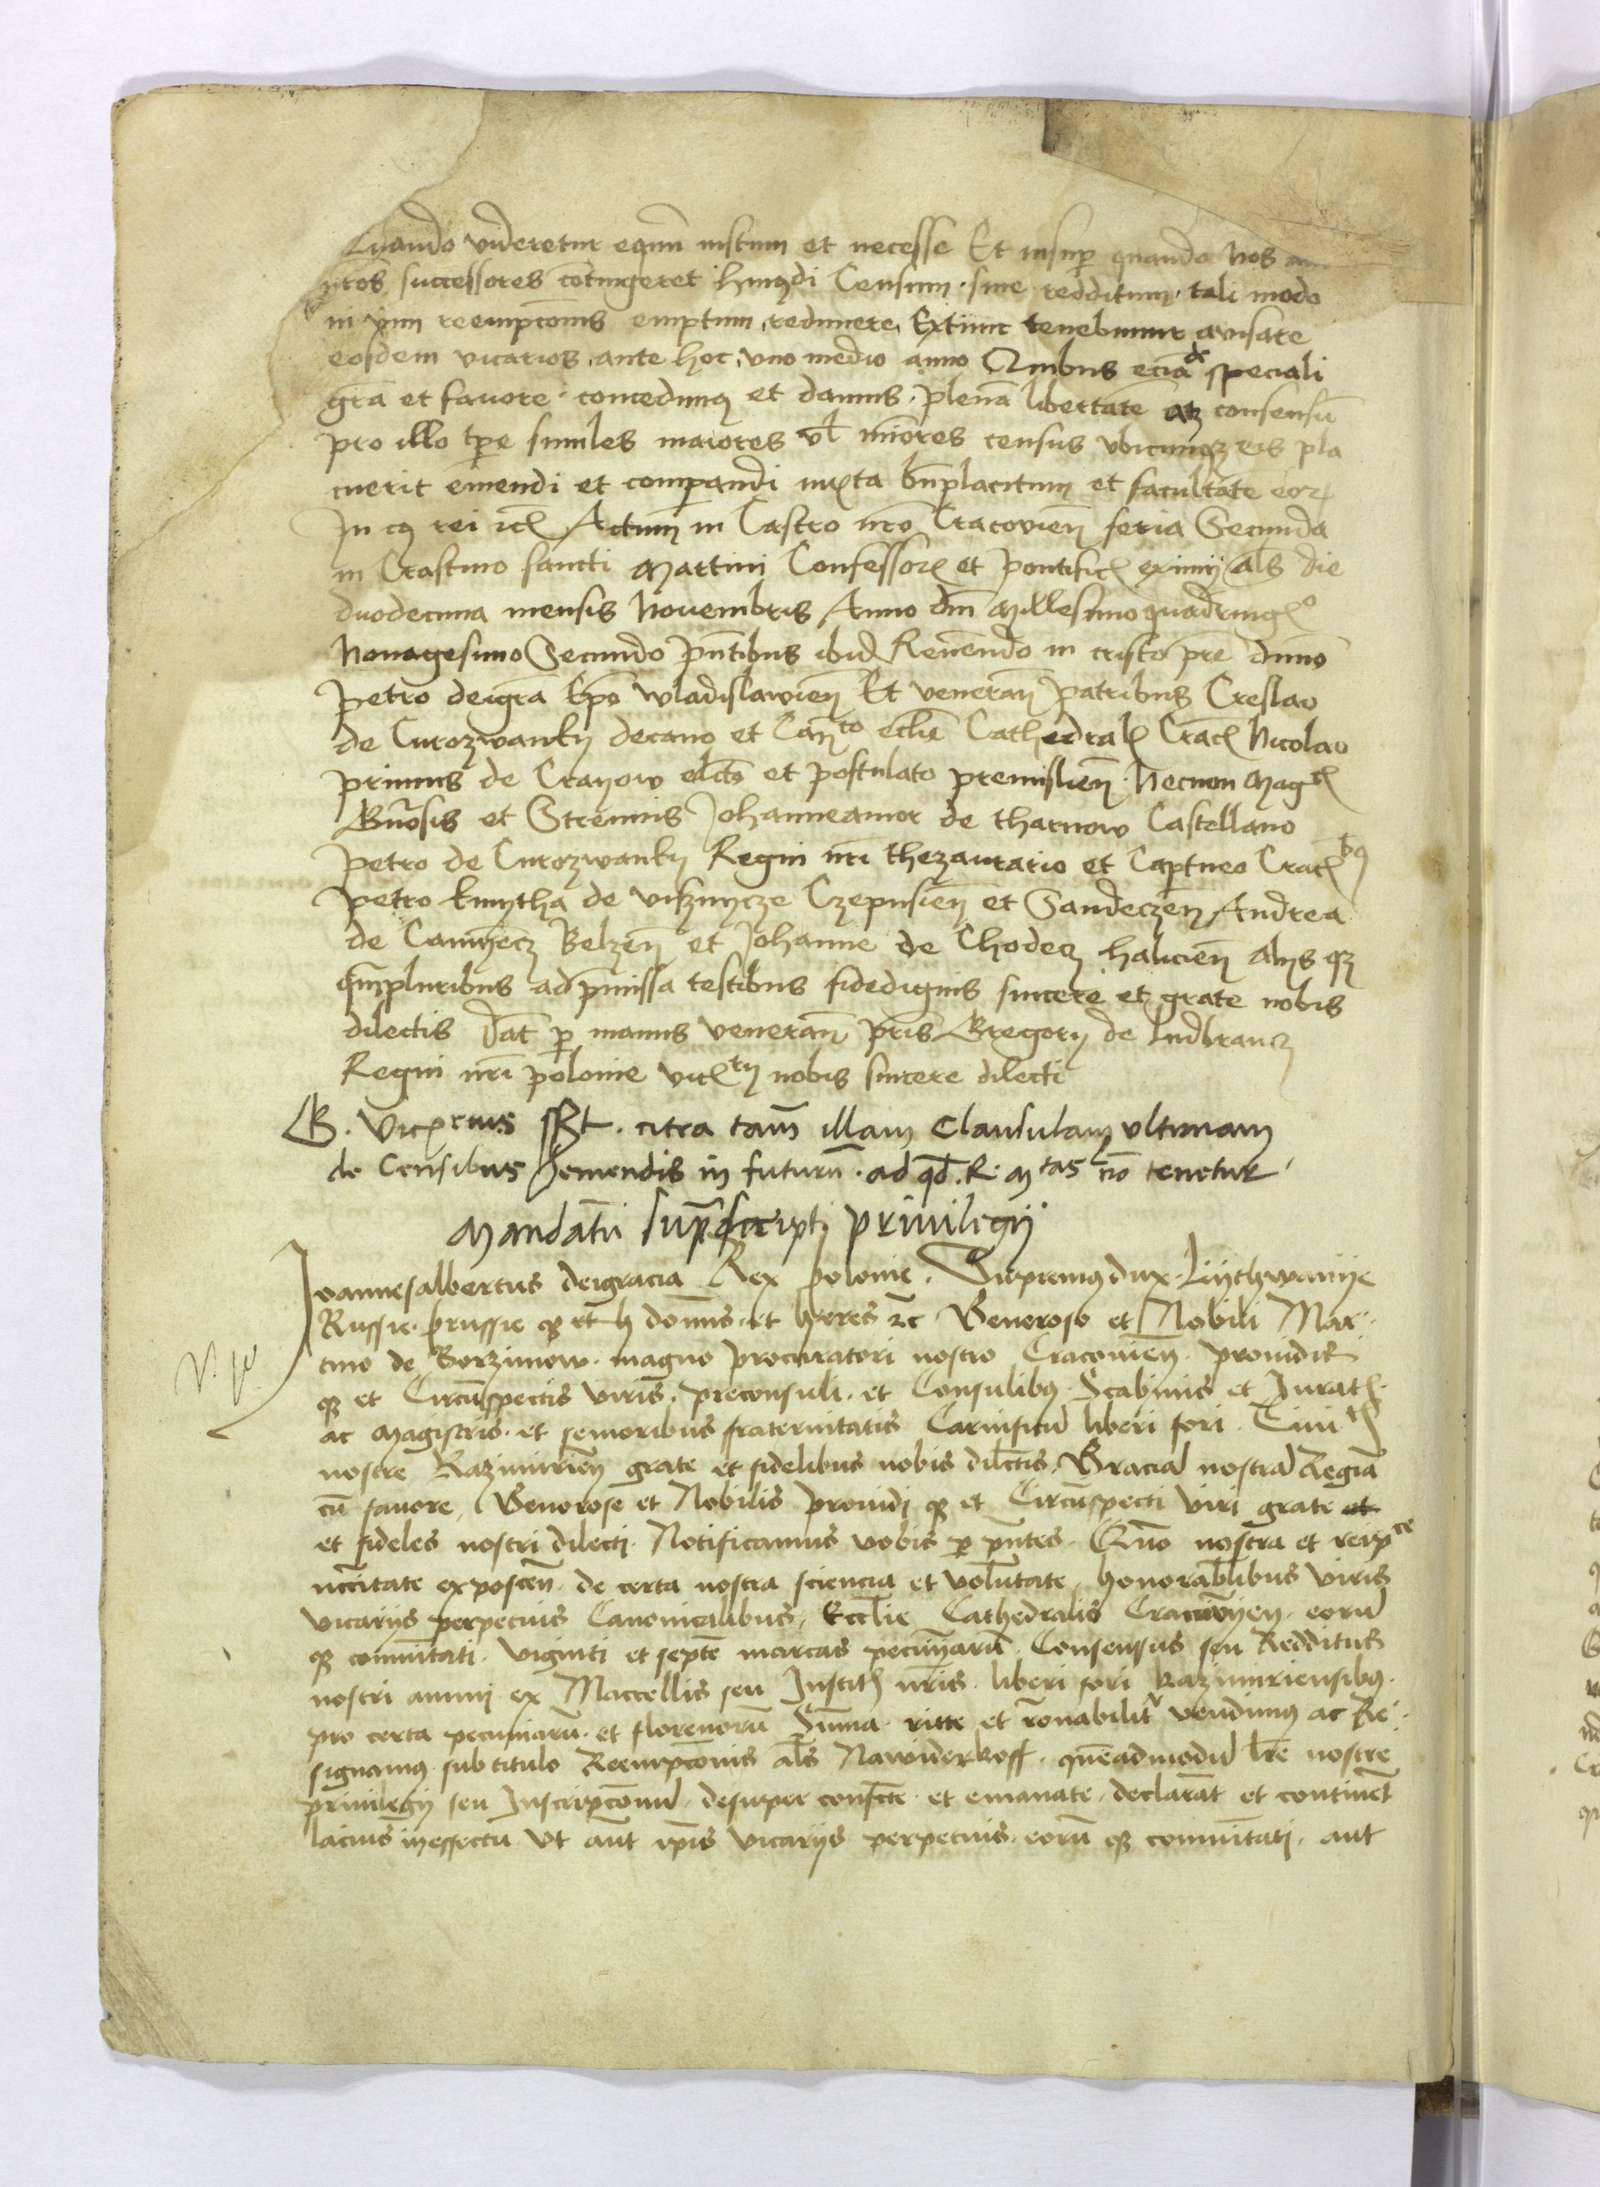 Quando videretur equm iustum et necesse Et insup quando Nos
nros successores cotingeret hmodi Censum siue redditum tali modo
in vim reempcois emptum redimere Extunc tenebimur auisare
eosdem vicarios ante hoc vno medio anno Quibus ecia de speciali
gra et fauore concedimus et damus plena libertate atq consensu
pro illo tpe similes maiores vl minores census vbicunq eis pla
cuerit emendi et comparandi iuxta bnplacitum et facultate eor
In cuius rei Actum in Castro nro Cracouien feria Secunda
in Crastino sancti Martini Confessor et pontific eximij als die
duodecima mensis Nouembris Anno dni Millesimo quadringo
Nonagesimo Secundo pntibus ibid Reuendo in cristo pre dnno
Petro deigra Epo Wladislauien Et veneran patribus Creslao
de Curozwanky decano et Canto eclie Cathedral Crac Nicolao
primus de Cranow elcto et postulato premislien Necnon Mag
Gnosis et Strenuis Johanneamor de tharnow Castellano
Petro de Curozwanky Regni nri thezaurario et Captneo Crac
Petro kmytha de visznycze Czepusien et Sandeczen Andrea
de Camyecz Belzen et Johanne de Chodecz halicien Alijs q
qmpluribus ad pmissa testibus fidedignis sincere et grate nobis
dilectis Dat p manus veneran pris Gregorij de ludbrancz
Regni nri polonie vicrij nobis sincere dilecti
G. Vic sst. citra tam illam Clausulam vltimam
de Censibus emendis in futuru ad qd R Mtas no tenetur
Mandatu suprascripti priuilegij
Joannesalbertus deigracia Rex polonie Supremus dux Lijthwanije
Russie prussie q etc h domnus et heres 2c Generoso et Nobili Mar
tino de Gorzimow magno procuratori nostro Cracouien prouidis
q et Circuspectis viris preconsuli et Consulibus Scabinis et Jurat
ac Magistris et senioribus fraternitatis Carnificu liberi fori Ciuit
nostre Kazimirien grate et fidelibus nobis dilctis Gracia nostra Regia
cu fauore Generose et Nobilis prouidi q et Circuspecti viri grate et
et fideles nostri dilecti Notificamus vobis p pntes Quo nostra et reipce
nccitate exposcen de certa nostra sciencia et voluntate honorablibus viris
vicarijs perpetuis Canonicalibus Ecclie Cathedralis Cracouijen eoru
q comunitati viginti et septe marcas pecunijaru Consensus seu Redditus
nostri annui ex Maccellis seu Instit nris liberi fori Kazimiriensibus
pro certa pecuniaru et florenoru Suma ritte et ronabilit vendimus ac Re
signamus sub titulo Reempconis als Nawiderkoff queadmodu lre nostre
priuilegij seu Inscripcionu desuper confcte et emanate declarat et continet
lacius in effectu Vt aut ipis vicarijs perpetuis eoru q comunitati aut